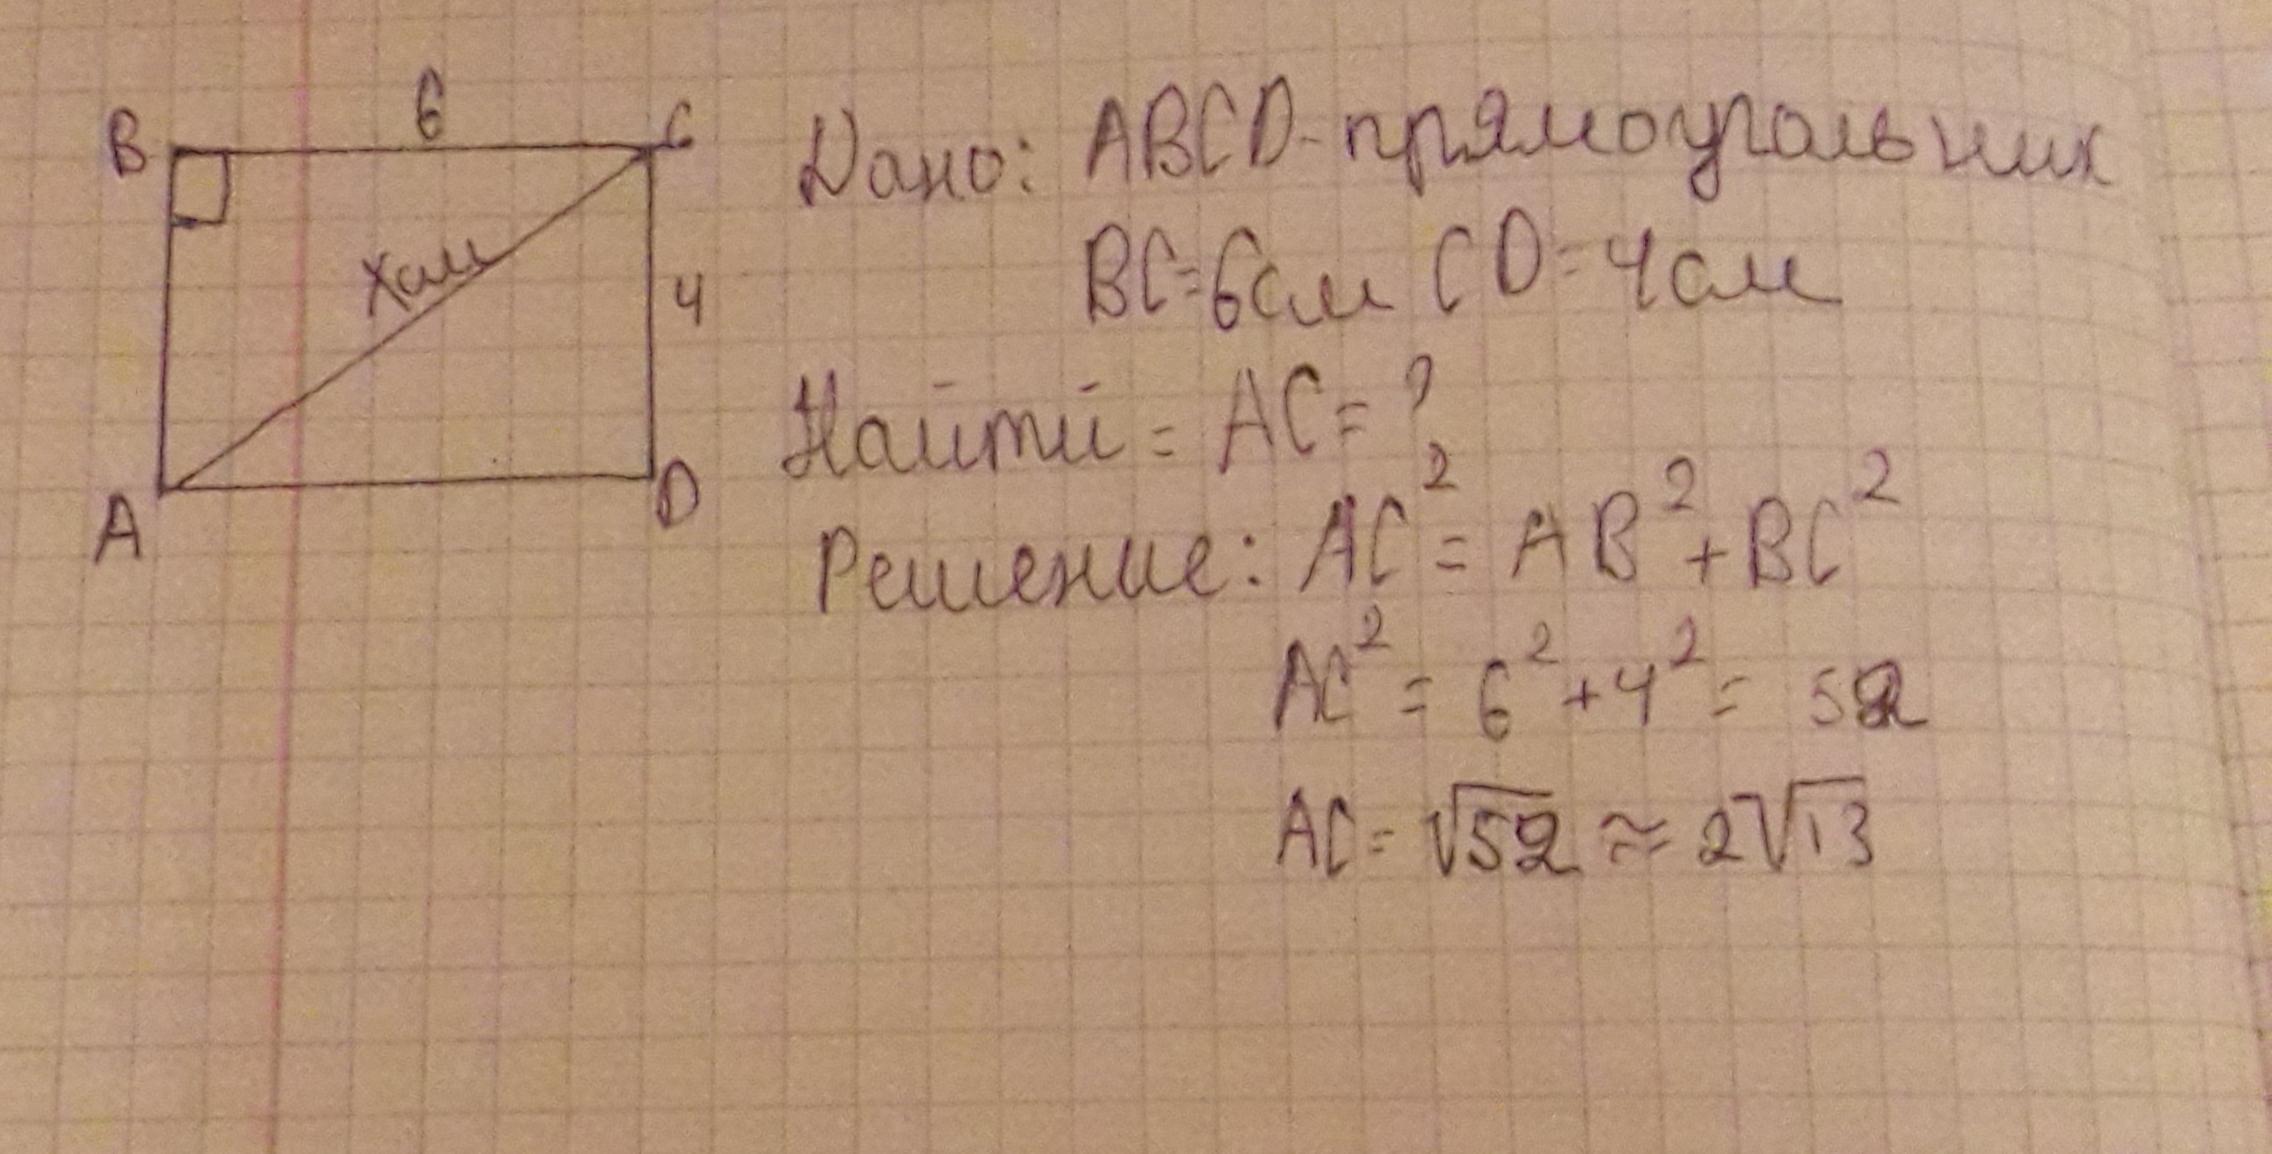 B 6 C
Хсм
4
A D
Дано: ABCD-прямоугольник
BC=6см CD=4см
Найтй= AC=?
Решение: AC²= AB²+BC²
AC² = 6²+4²= 52
AC= √52 ≈ 2√13